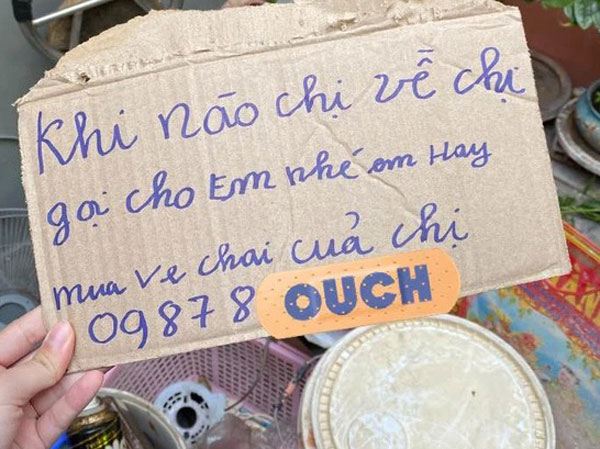 Khi nào chị về chị
gọi cho Em nhé em Hay
mua ve chai cuả chị
09878
OUCH